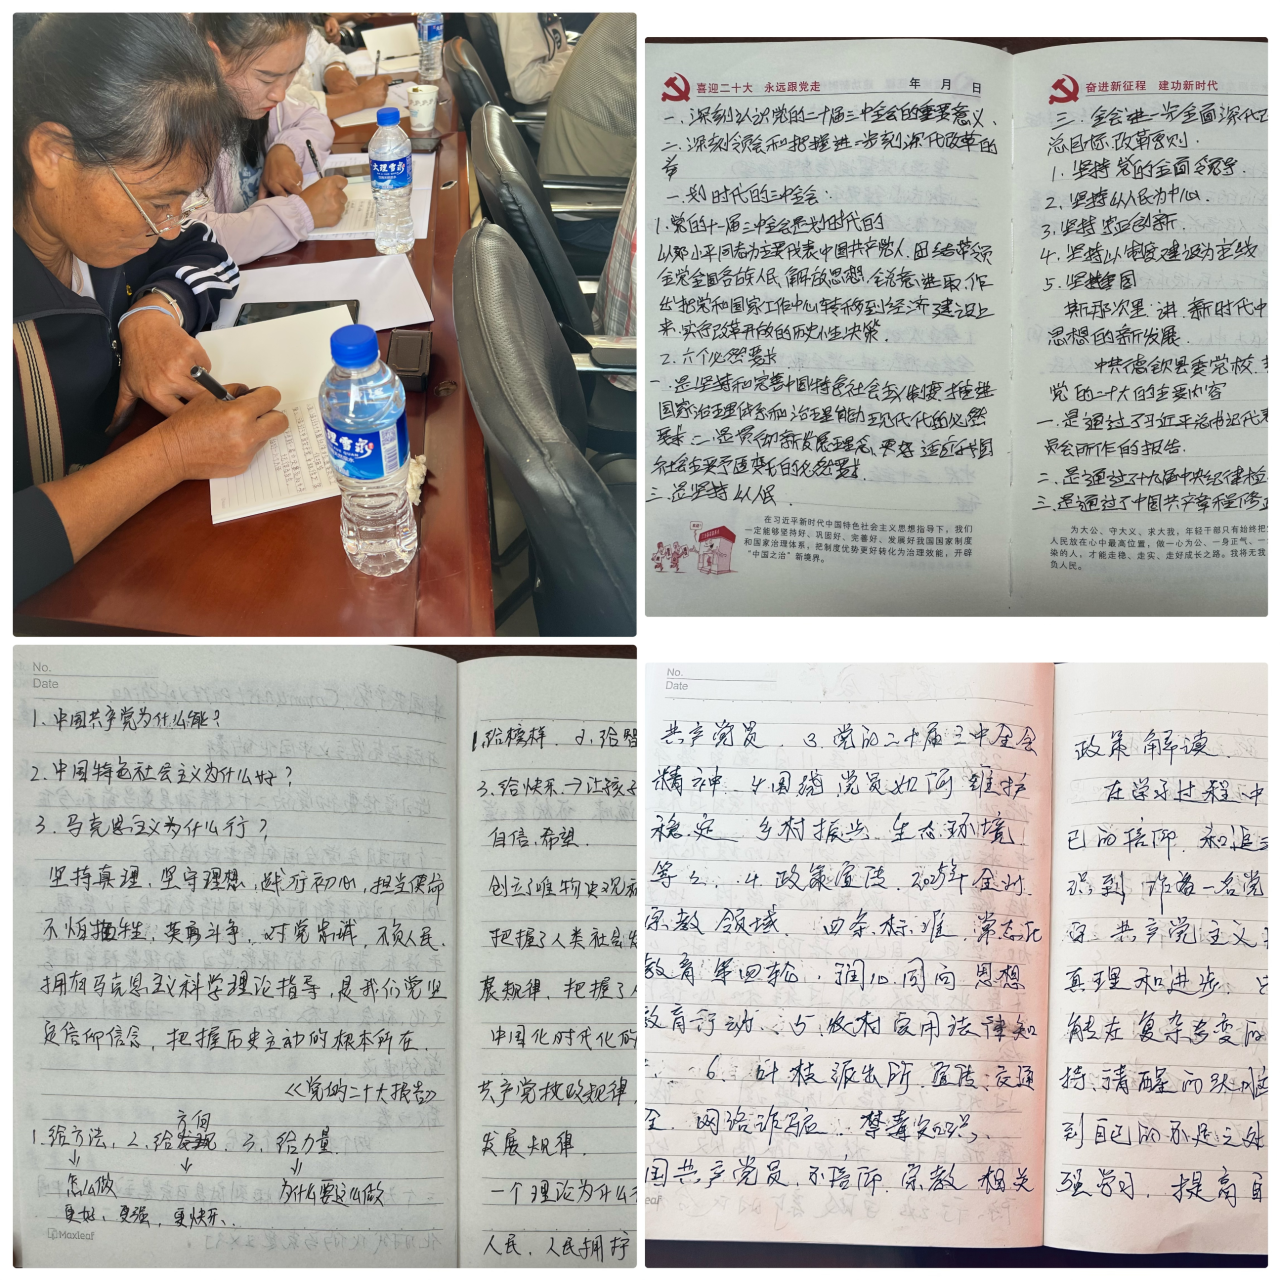 大理雪泉
大理雪泉
喜迎二十大 永远跟党走
年 月 日
一、深刻认识党的二十届三中全会的重要意义、
二、深刻领会和把握进一步刻深代改革的
一、划时代的三中全会:
1.党的十一届三中全会是划时代的
以邓小平同志为主要代表中国共产党人,团结带领
全党全国各族人民,解放思想,进取,作
出把党和国家工作中心转移到经济建设上
来,实行改革开放的历史性决策.
2.六个必然要求
一、是坚持和完善中国特色社会主义制度,推进
国家治理体系和治理能力现代化的必然
要求二、是贯彻新发展理念,更好适应我国
社会主要矛盾变化的必然要求
三.是坚持以人民
在习近平新时代中国特色社会主义思想指导下,我们
一定能够坚持好、巩固好、完善好、发展好我国国家制度
和国家治理体系,把制度优势更好转化为治理效能,开辟
“中国之治”新境界。
奋进新征程 建功新时代
三.全会进一步全面深代改
总目标.改革原则.
1.坚持党的全面领导.
2.坚持以人民为中心.
3.坚持守正创新.
4.坚持以制度建设为主线
5.坚持全国
斯那次里:讲.新时代中
思想的新发展.
中共德钦县委党校.
党的二十大的主要内容
一.是通过了习近平总书记代表
员会所作的报告.
二.是通过了十九届中央纪律检
三.是通过了中国共产章程修正
为大公、守大义、求大我,年轻干部只有始终把
人民放在心中最高位置,做一心为公、一身正气、一
染的人,才能走稳、走实、走好成长之路。我将无我
负人民。
No.
Date
1.中国共产党为什么能?
2.中国特色社会主义为什么好?
3.马克思主义为什么行?
坚持真理,坚守理想,践行初心,担当使命
不怕牺牲,英勇斗争,对党忠诚,不负人民.
拥有马克思主义科学理论指导,是我们党坚
定信仰信念,把握历史主动的根本所在.
《党的二十大报告》
方向
1.给方法, 2.给发现 3.给力量.
怎么做 为什么要这么做
更好、更强,更快乐.
Maxleaf
1.给榜样. 2.给智
3.给快乐→让孩子
自信,希望.
创立了唯物史观和
把握了人类社会发
展规律,把握了
中国化时代化的
共产党执政规律,
发展规律.
一个理论为什么
人民、人民拥护
No.
Date
共产党员. 3.党的二十届三中全会
精神. 4.国强,党员如何维护
稳定 乡村振兴、生态环境
等2、4.政策宣传.2025年全州
宗教领域.四条标准,常态化
教育第四轮.润心同向思想
教育行动. 5.农村实用法律知
6.叶枝派出所.宣传:交通
全.网络诈骗.禁毒知识,
国共产党员,不信仰.宗教相关
政策解读.
在学习过程中
己的信仰.和追
识到.作为一名党
百.共产党主义
真理和进步.
能在复杂多变的
持清醒的头脑
到自己的不足之处
强学习,提高自